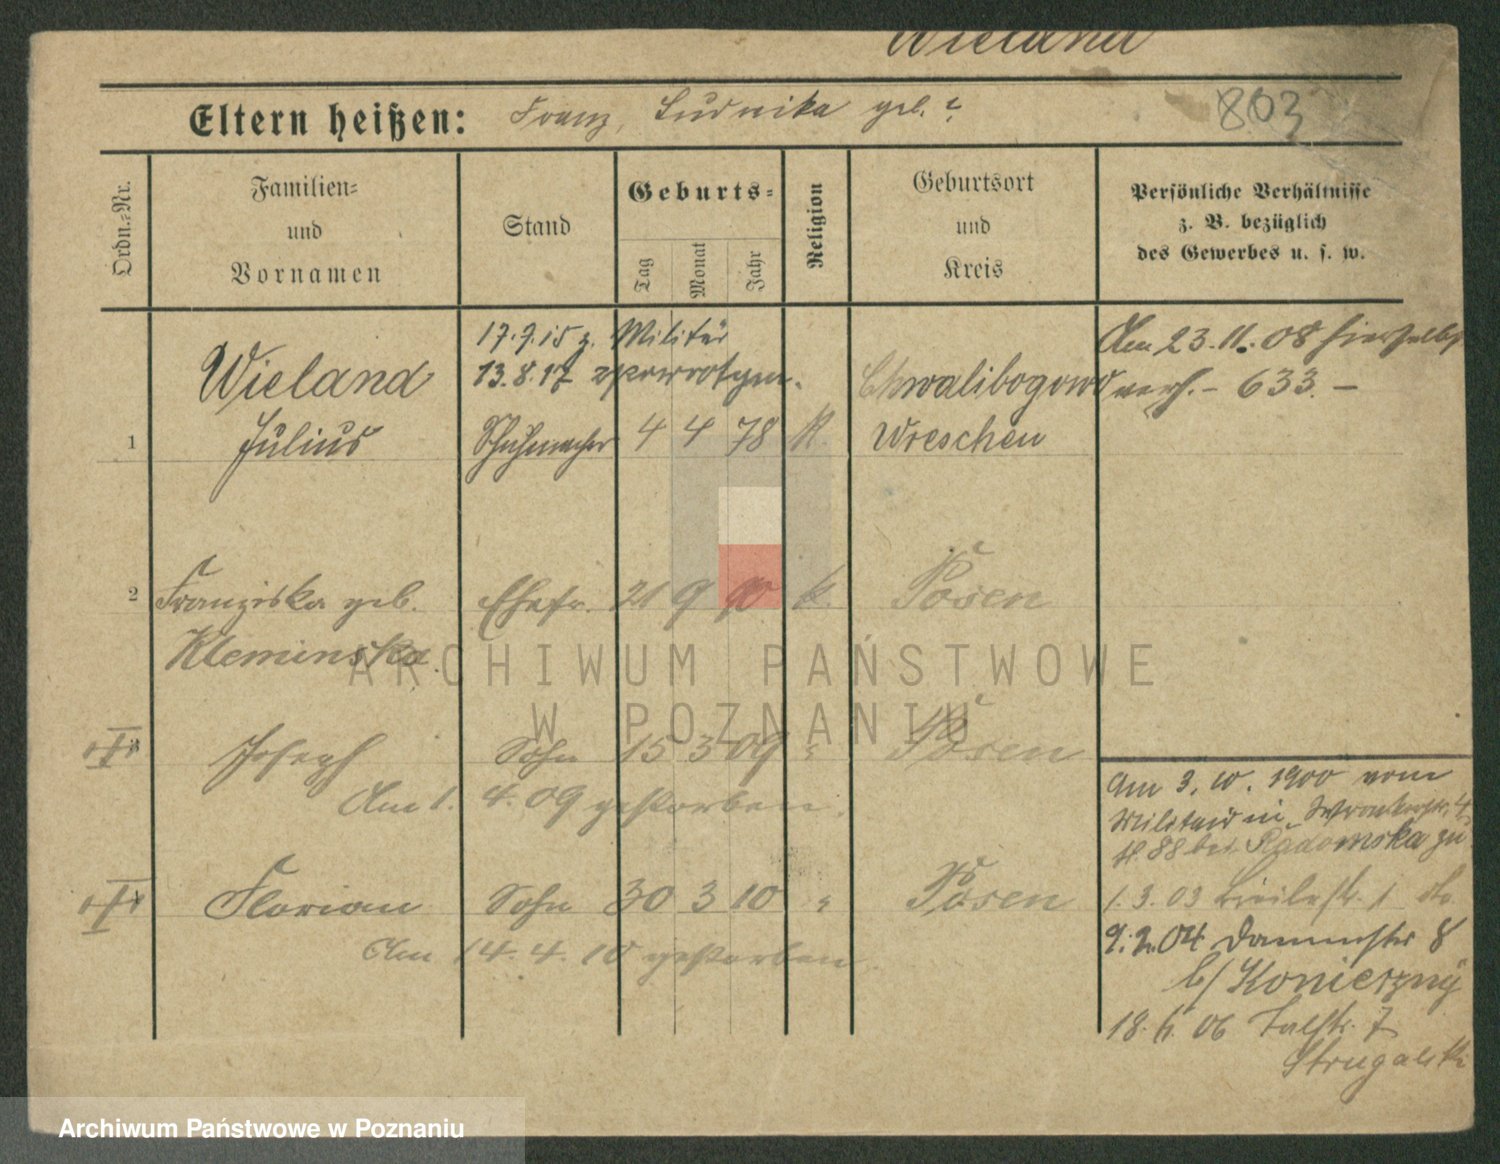 Wieland
Eltern heißen: Franz, Ludwika geb. ?
803
Ordn.-Nr.
Familien-
und
Vornamen
Stand
Geburts-
Tag
Monat
Jahr
Religion
Geburtsort
und
Kreis
Persönliche Verhältnisse
z. B. bezüglich
des Gewerbes u. s. w.
17.9.15 z. Militär
13.8.17
Am 23.11.08 hierselbst
verh. – 633. –
1
Wieland
Julius
Schuhmacher
4 4 78 K.
Chwalibogowo
Wreschen
2
Franziska geb.
Kleminska
Ehefr. 21 9 90 k. Posen
3
Joseph Sohn 15 3 09 " Posen
Am 1. 4. 09 gestorben.
4
Florian Sohn 30 3 10 " Posen
Am 14. 4. 10 gestorben
Am 3. 10. 1900 vom
Militair in Wronkerstr. 4
H. 88 bei Radomska zu
1. 3. 03 1
9.2.04 Dammstr 8
b/ Konierzny
18. 06 Talstr. 7
Strugalski
ARCHIWUM PAŃSTWOWE
W POZNANIU
Archiwum Państwowe w Poznaniu